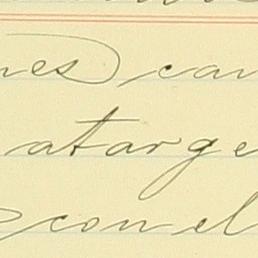 nes can
atarge
con el